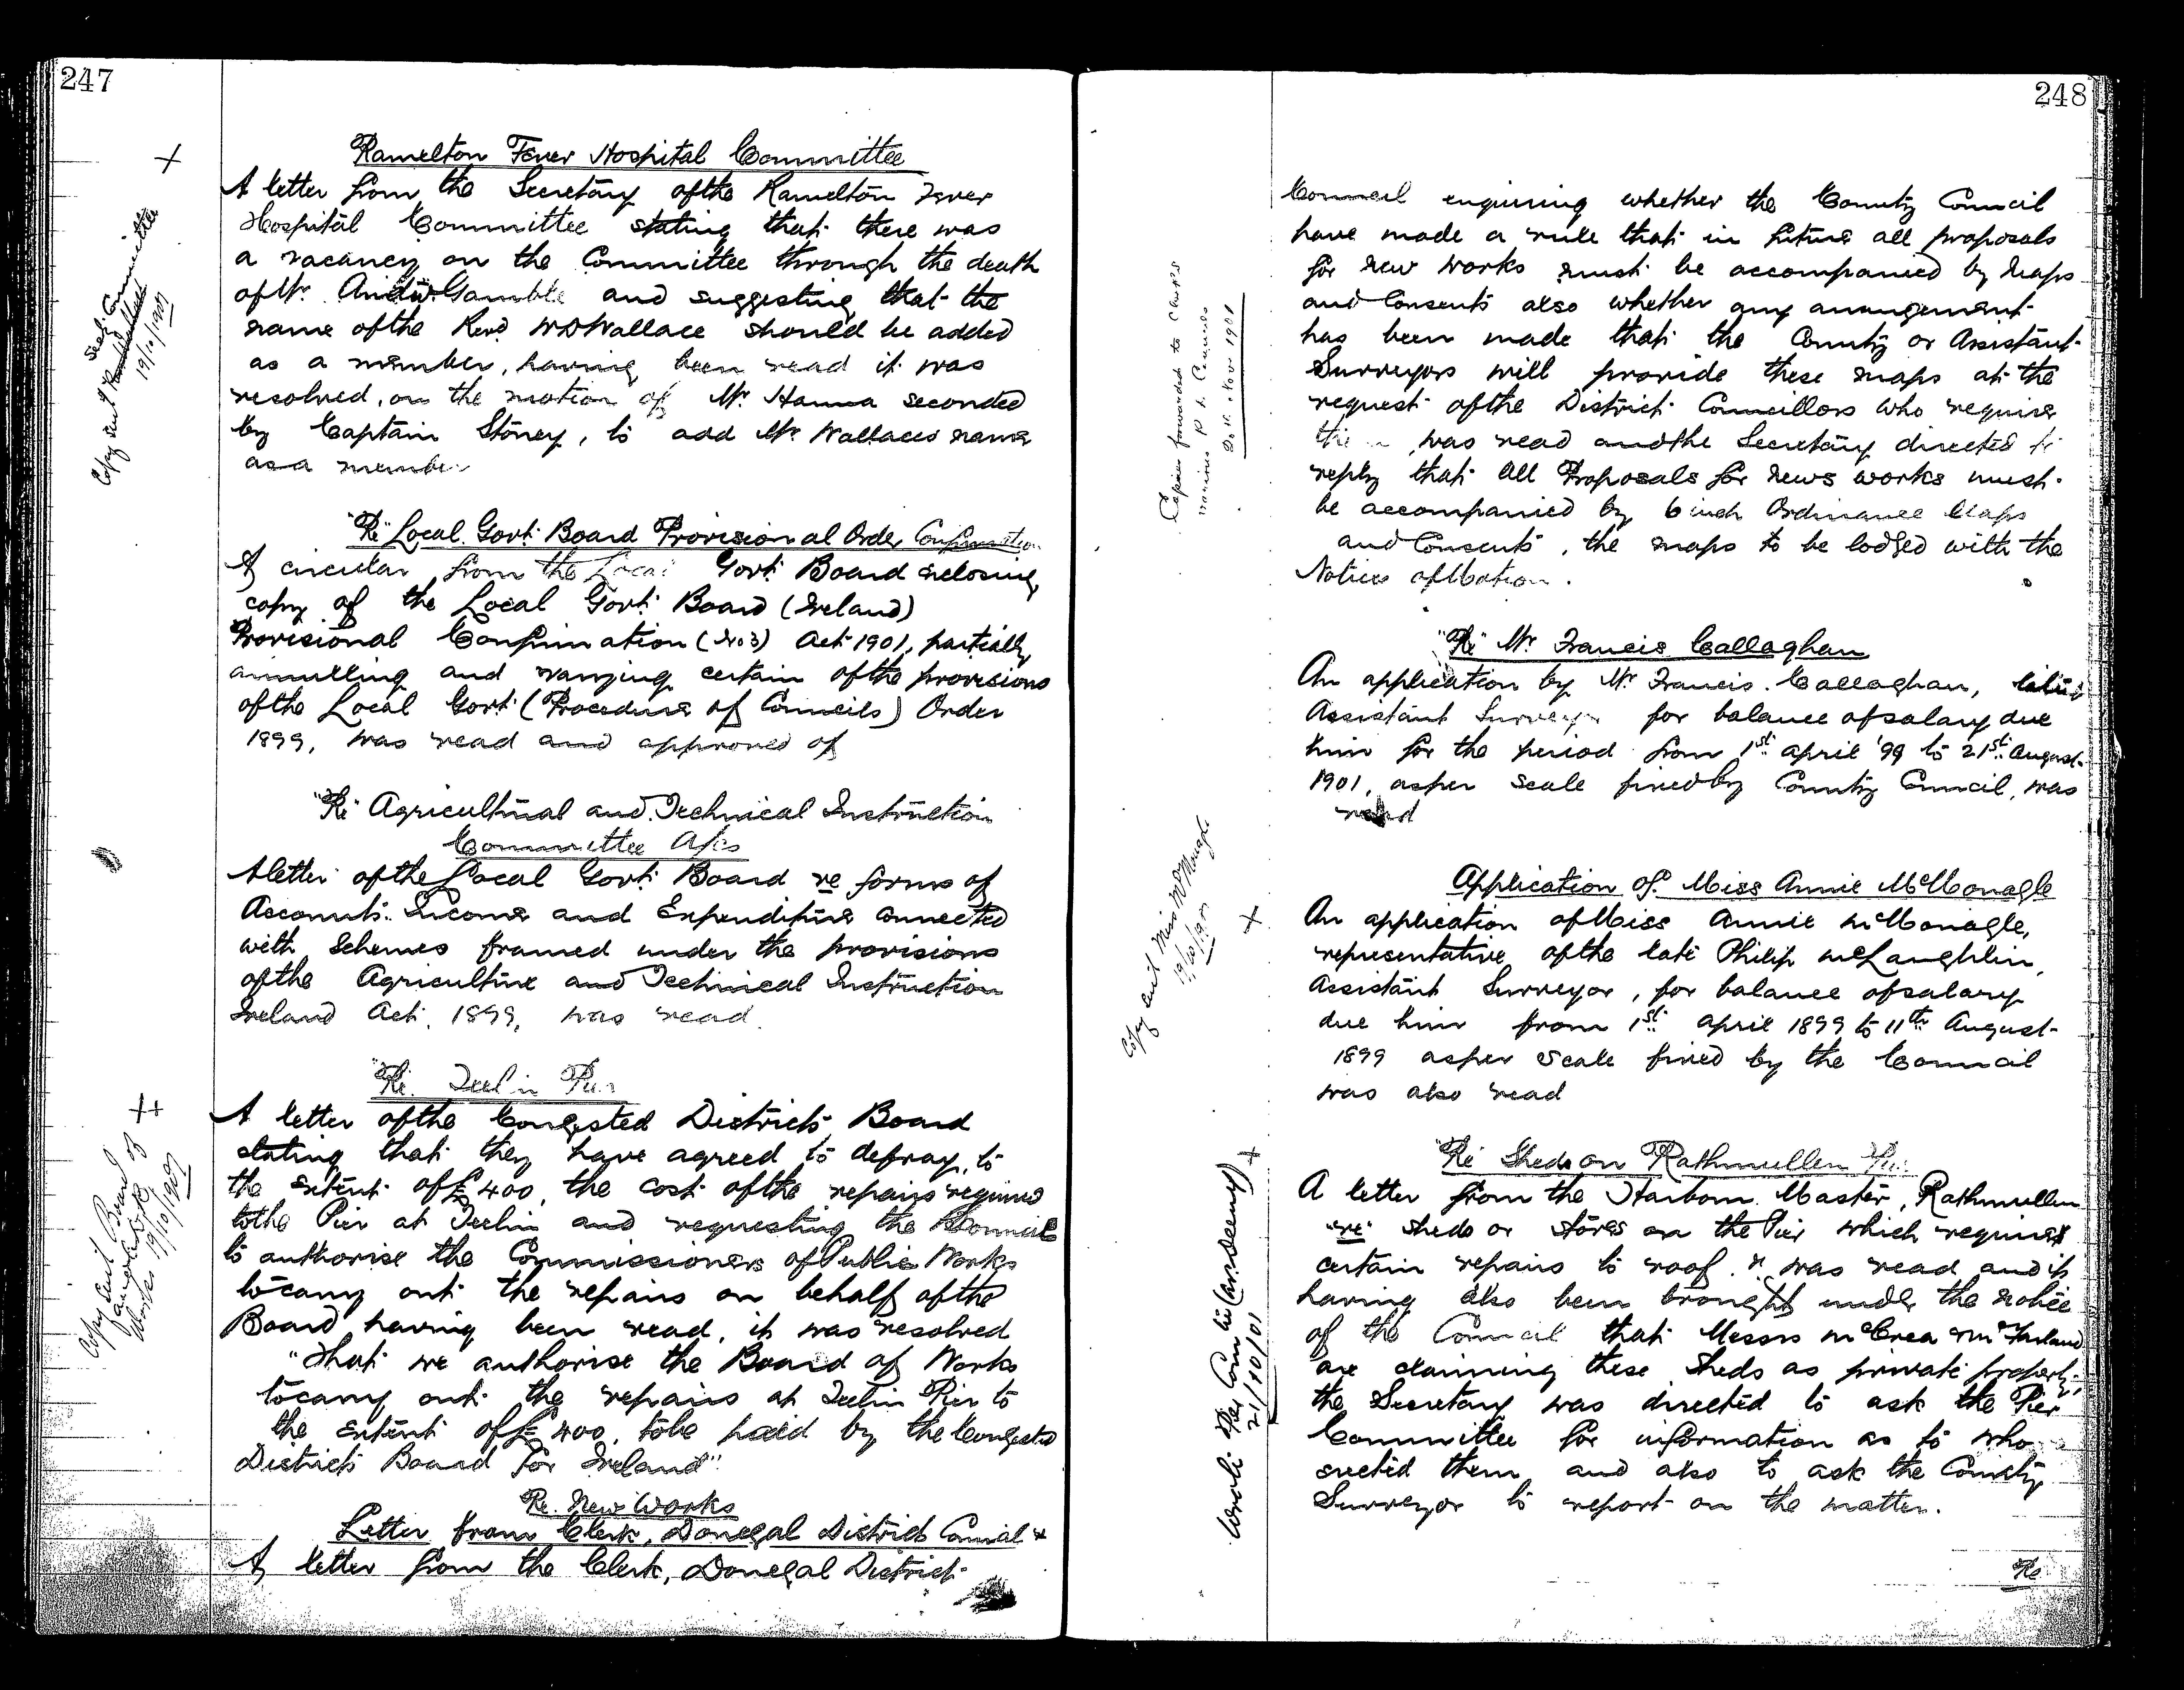 247
Ramelton Fever Hospital Committee
A letter from the Secretary of the Ramelton Fever
Hospital Committee stating that there was
a vacancy on the Committee through the death
of Mr. Andw. Gamble and suggesting that the
name of the Revd W D Wallace should be added
as a member, having been read it was
resolved, on the motion of Mr Hanna seconded
by Captain Stoney, to add Mr Wallaces name
as a member
Copy sent Secy. Committee
19/10/1901
"Re" Local Govt Board Provisional Order Confirmation
A circular from the Local Govt Board enclosing
copy of the Local Govt Board (Ireland)
Provisional Confirmation (No 3) Act 1901, partially
annulling and varying certain of the provisions
of the Local Govt (Procedure of Councils) Order
1899, was read and approved of
"Re" Agricultural and Technical Instruction
Committee A/cs
A letter of the Local Govt Board re forms of
Accounts. Income and Expenditure connected
with Schemes framed under the provisions
of the Agriculture and Technical Instruction
Ireland Act, 1899, was read.
"Re" Teelin Pier
A letter of the Congested Districts Board
stating that they have agreed to defray, to
the extent of £400, the cost of the repairs required
to the Pier at Teelin and requesting the Council
to authorise the Commissioners of Public Works
to carry out the repairs on behalf of the
Board having been read, it was resolved
"That we authorise the Board of Works
to carry out the repairs at Teelin Pier to
the extent of £400, to be paid by the Congested
Districts Board for Ireland".
Copy sent Board of
Works 19/10/1901
Re. New Works
Letter from Clerk, Donegal District Council
A letter from the Clerk, Donegal District
248
Council enquiring whether the County Council
have made a rule that in future all proposals
for new works must be accompanied by Maps
and Consents also whether any arrangement
has been made that the County or Assistant
Surveyors will provide these maps at the
request of the District Councillors who require
them, was read and the Secretary directed to
reply that all Proposals for news works must
be accompanied by 6 inch Ordinance Maps
and Consents, the maps to be lodged with the
Notices of Motion.
Copies forwarded to Clerks
various R D Councils
"Re" Mr Francis Callaghan
An application by Mr Francis Callaghan, late
Assistant Surveyor for balance of salary due
him for the period from 1st April '99 to 21st August
1901, as per scale fixed by County Council, was
read
Application of Miss Annie McMonagle
An application of Miss Annie McMonagle,
representative of the late Philip McLaughlin,
Assistant Surveyor, for balance of salary
due him from 1st April 1899 to 11th August
1899 as per scale fixed by the Council
was also read
Copy sent Miss McMonagle
19/10/1901
"Re" Sheds on Rathmullen Pier
A letter from the Harbour Master, Rathmullen
"re" sheds or stores on the Pier which requires
certain repairs to roof. &c was read and it
having also been brought under the notice
of the Council that Messrs McCrea & McFarland
are claiming these Sheds as private property,
the Secretary was directed to ask the Pier
Committee for information as to who
erected them, and also to ask the County
Surveyor to report on the matter.
Wrote Pier Comtee
21/10/01
Re